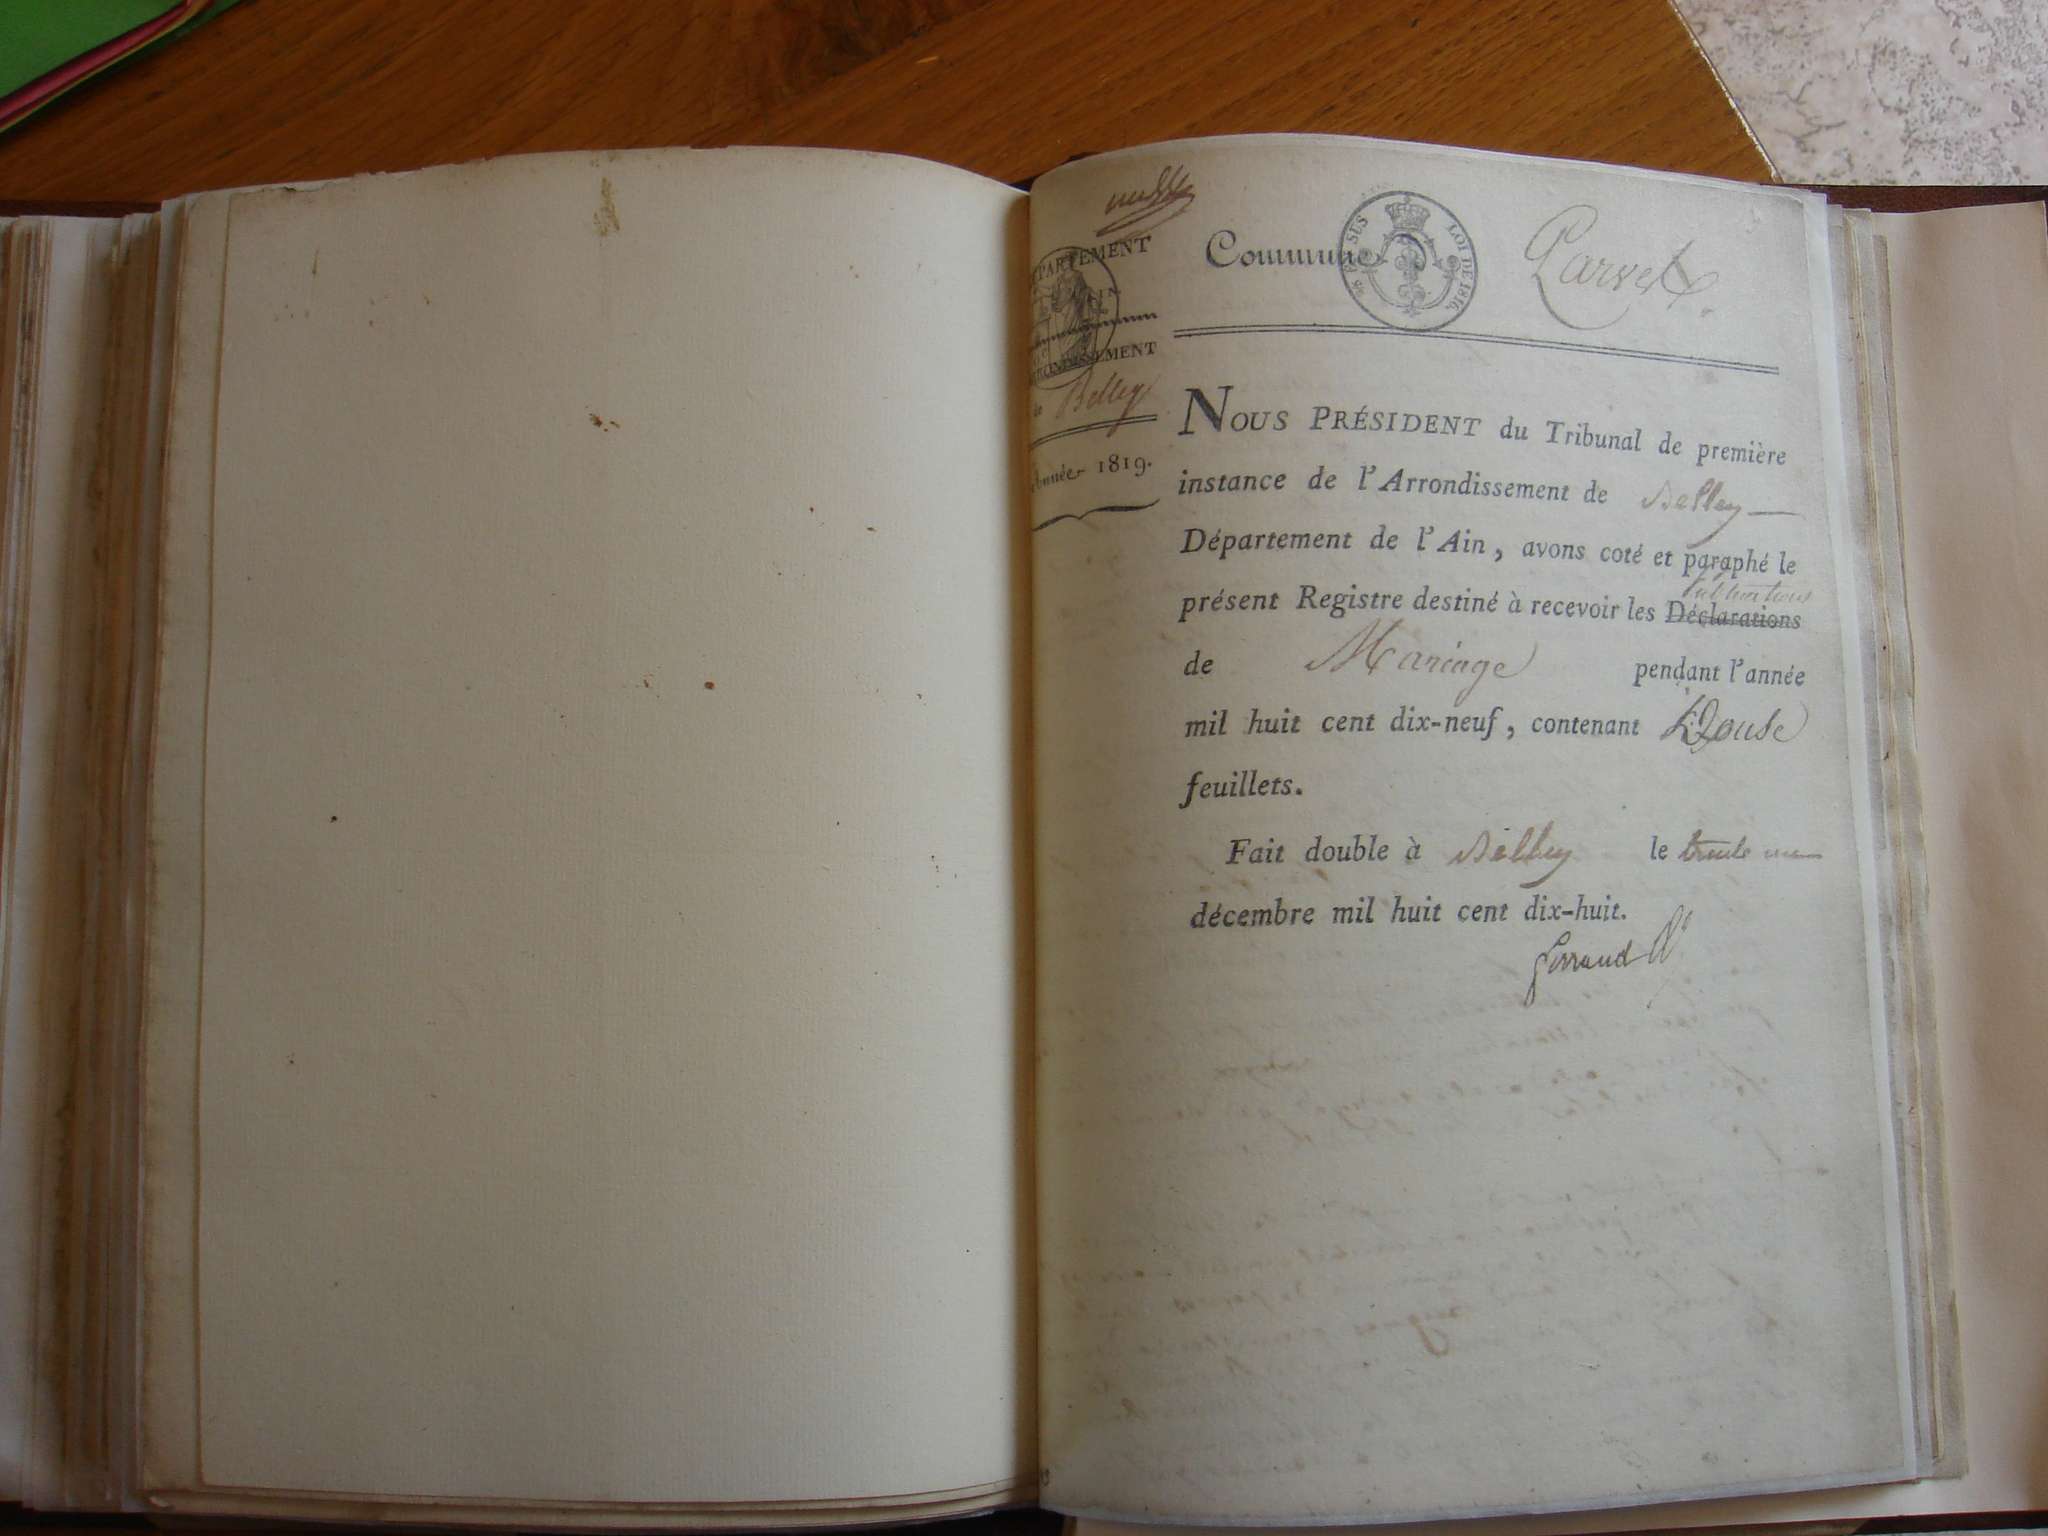 DÉPARTEMENT
AIN.
ARRONDISSEMENT
de Belley
Année 1819.
Commune Parves
SUS LOI DE 1816.
NOUS PRÉSIDENT du Tribunal de première
instance de l'Arrondissement de Belley
Département de l'Ain, avons coté et paraphé le
présent Registre destiné à recevoir les Déclarations publications
de Mariage pendant l'année
mil huit cent dix-neuf, contenant Douse
feuillets.
Fait double à Belley le trente un
décembre mil huit cent dix-huit.